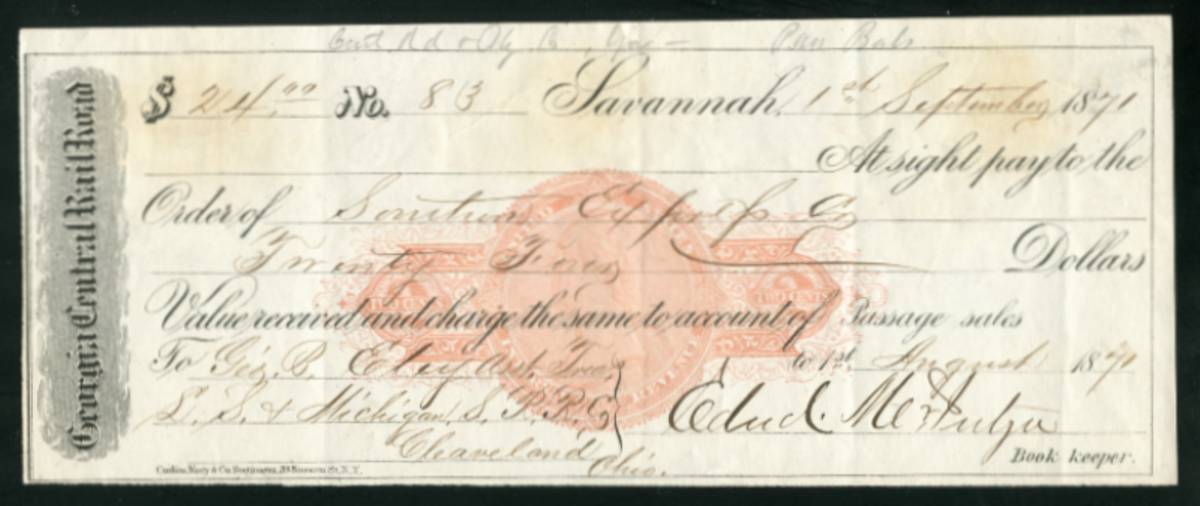 Georgia Central Rail Road
$ 24.00 No. 83 Savannah, 1st September 1871
At sight pay to the
Order of Southern Express Co
Twenty Four Dollars
Value received and charge the same to account of Passage sales
To Geo. B. Ely Asst. Treas to 1st August 1871
L. S. & Michigan S. R. R. Co Edwd.
Cleaveland Ohio.
Book keeper.